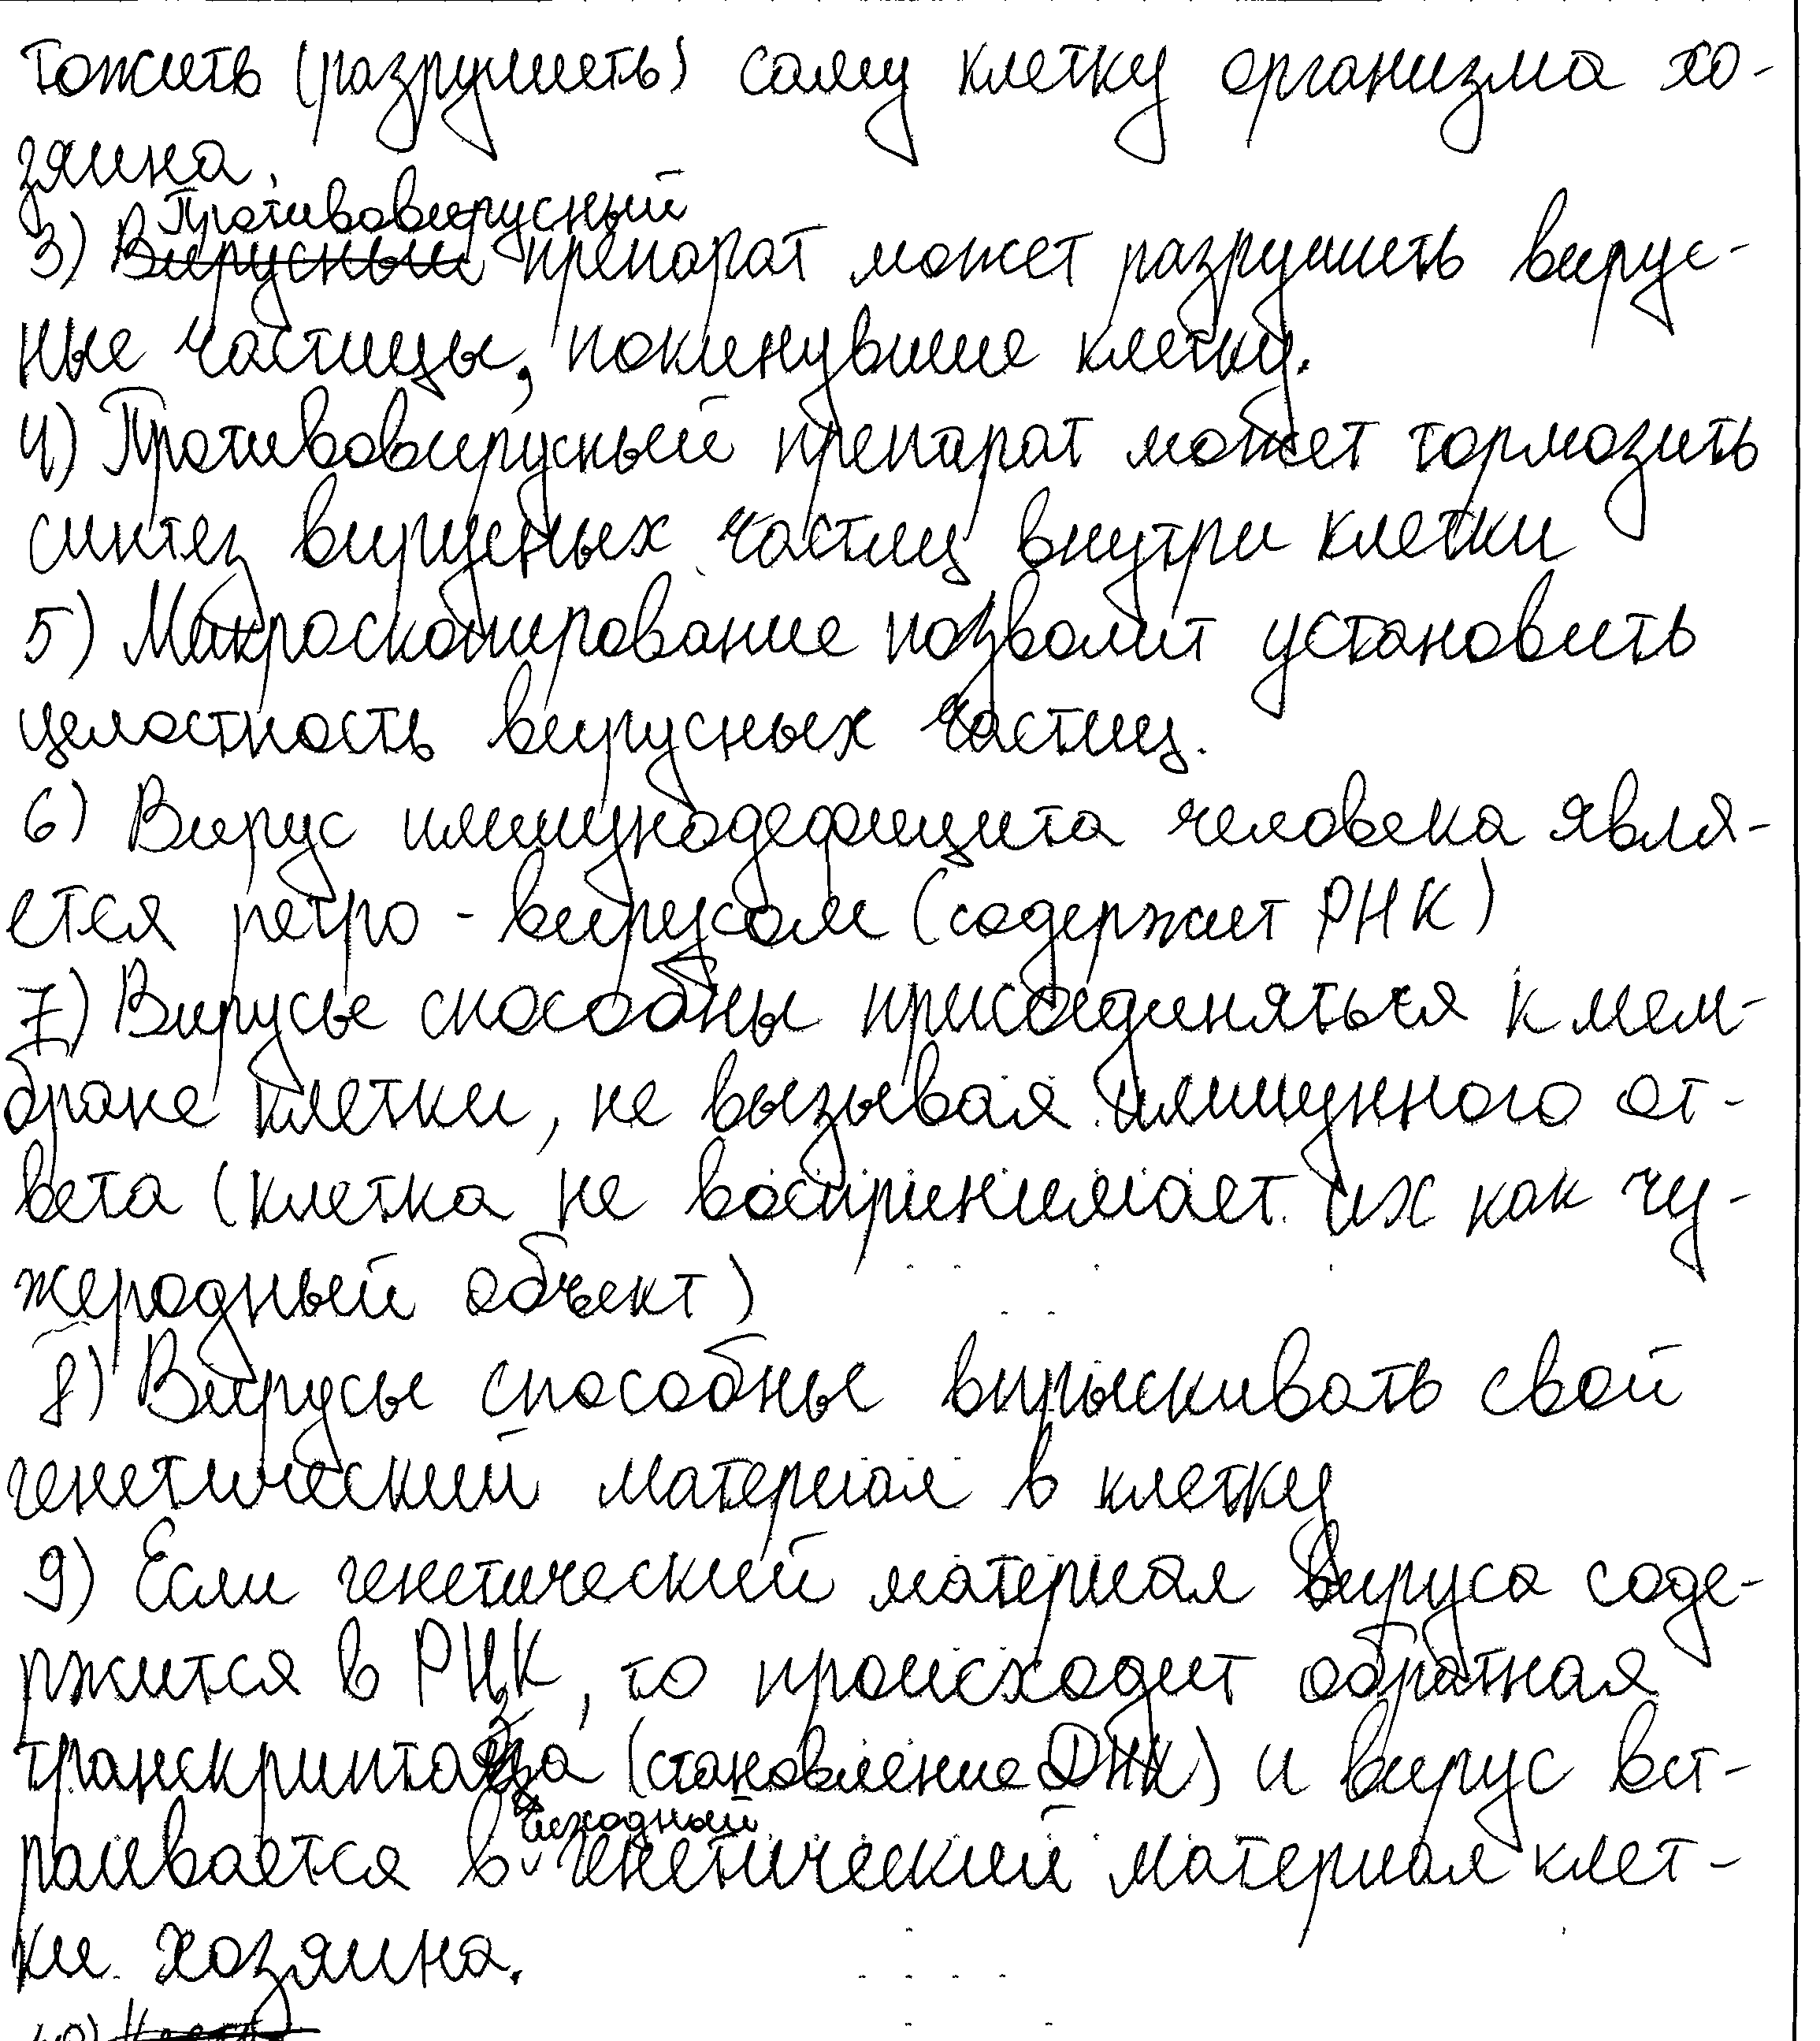 тожить (разрушить) саму клетку организма хо-
зяина.
Противовирусный
3) Вирусный препарат может разрушить вирус-
ные частицы, покинувшие клетку.
4) Противовирусный препарат может тормозить
синтез вирусных частиц внутри клетки
5) Микроскопирование позволит установить
целостность вирусных частиц.
6) Вирус иммунодефицита человека явля-
ется ретро-вирусом (содержит РНК)
7) Вирусы способны присоединяться к мем-
бране клетки, не вызывая иммунного от-
вета (клетка не воспринимает их как чу-
жеродный объект)
8) Вирусы способны впрыскивать свой
генетический материал в клетку
9) Если генетический материал вируса соде-
ржится в РНК, то происходит обратная
(становление ДНК) и вирус вст-
исходный
раивается в генетический материал клет-
ки хозяина.
10)